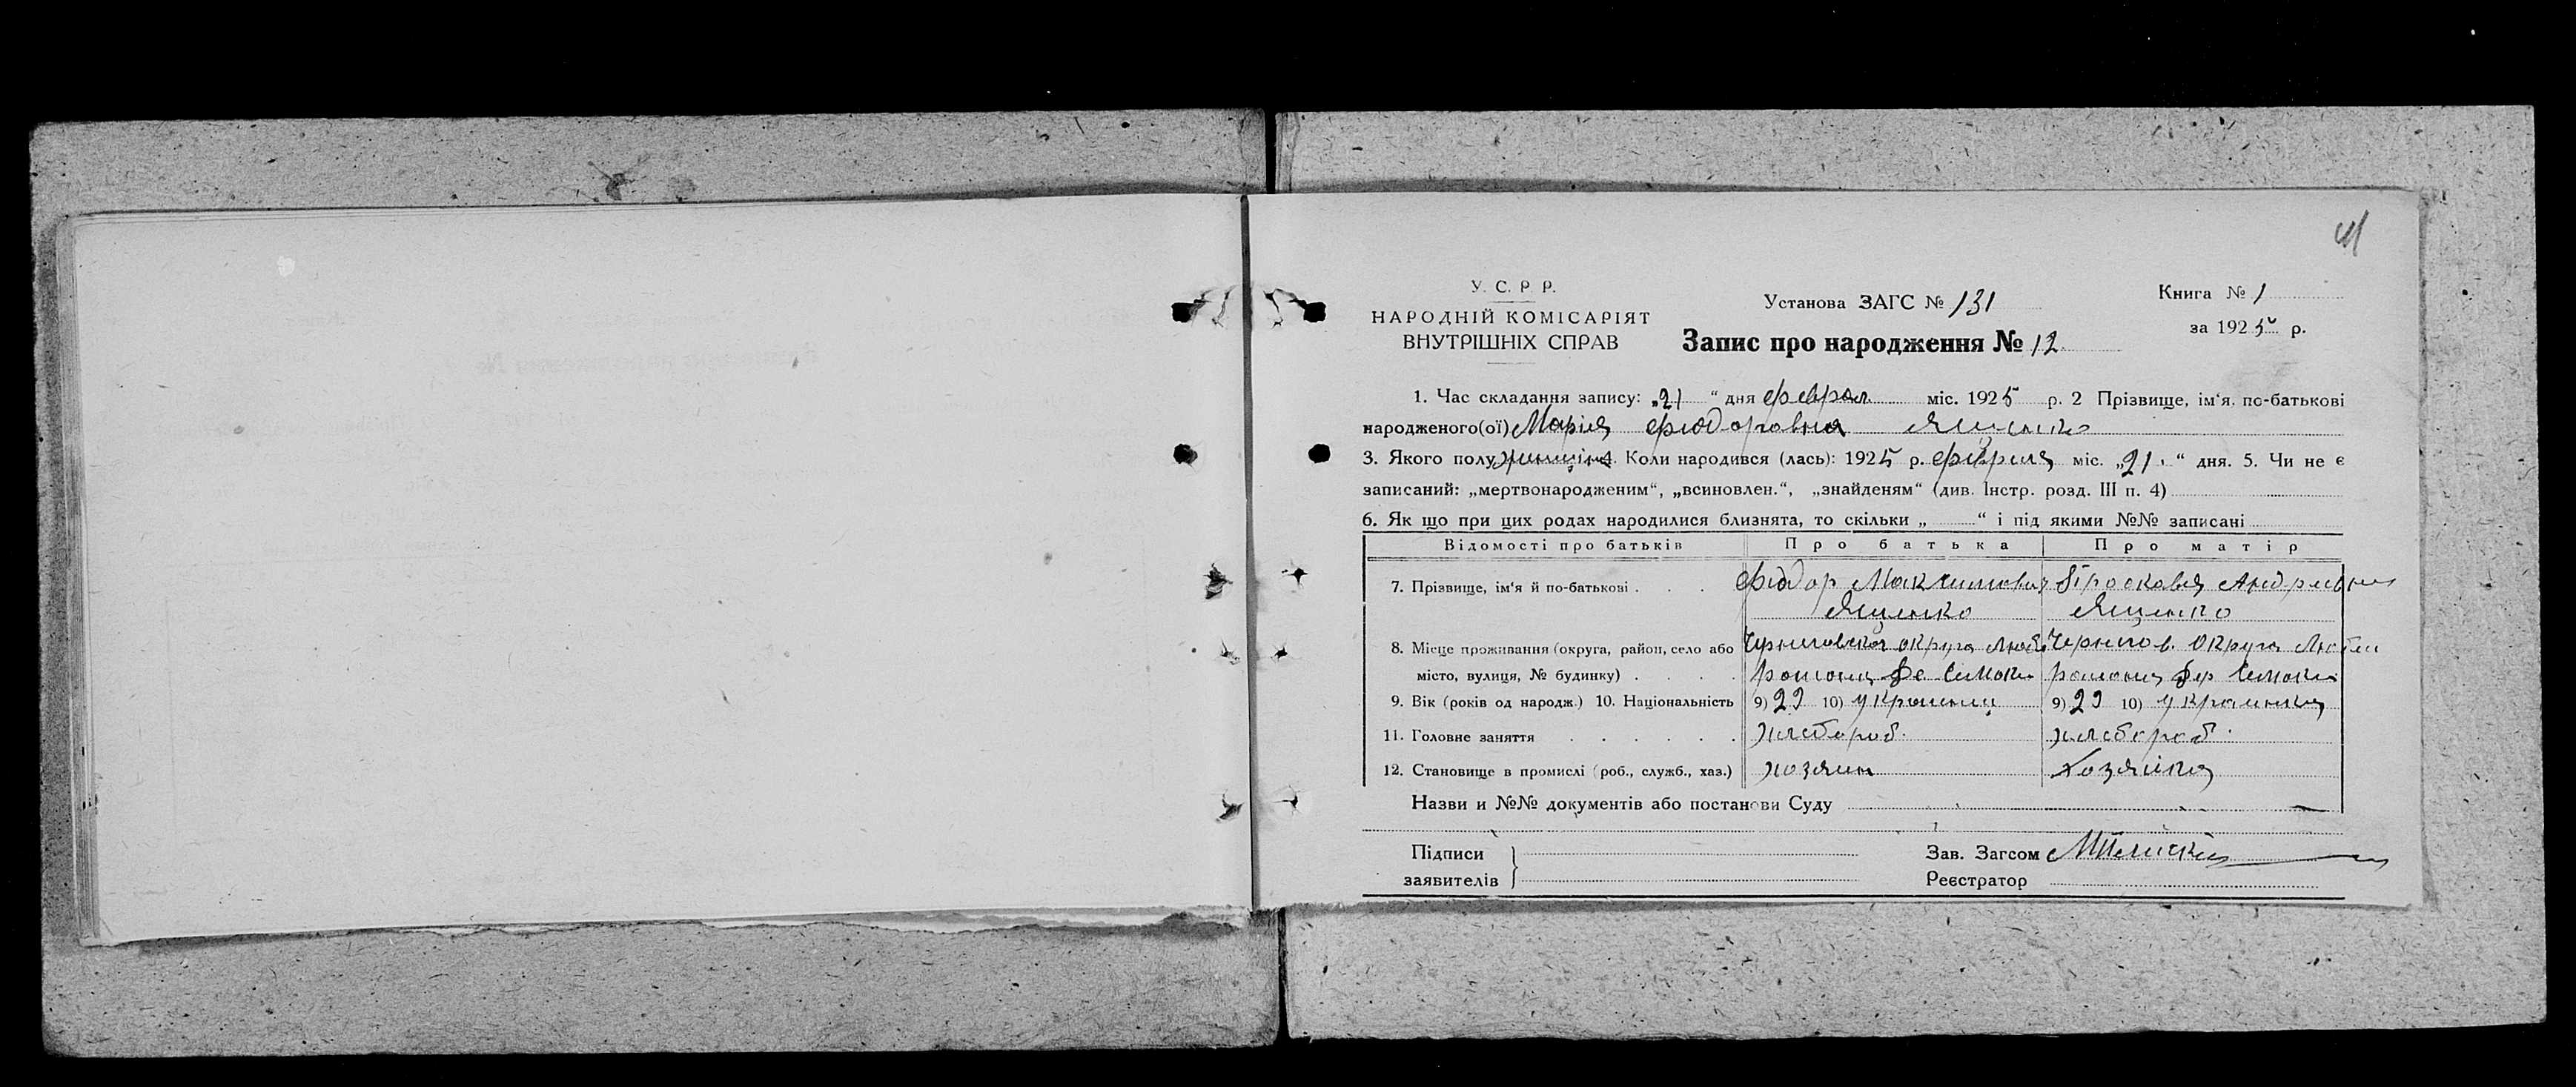 41
У. С. Р. Р.
НАРОДНІЙ КОМІСАРІЯТ
ВНУТРІШНІХ СПРАВ
Установа ЗАГС № 131
Запис про народження № 12
Книга № 1
за 1925 р.
1. Час складання запису: „21“ дня феврал міс. 1925 р. 2 Прізвище, ім'я, по-батькові
народженого(ої) Мария Фюдоровна Ященко
3. Якого полу женщина. Коли народився (лась): 1925 р. февриля міс. „21“ дня. 5. Чи не є
записаний: „мертвонародженим“, „всиновлен.“, „знайденям“ (див. Інстр. розд. III п. 4)
6. Як що при цих родах народилися близнята, то скільки „ “ і під якими №№ записані
Відомості про батьків Про батька Про матір
7. Прізвище, ім'я й по-батькові . . . Фюдор Максимович Просковя Андреевна
Ященко Ященко
8. Місце проживання (округа, район, село або Черниговская округа Любе Чернигов. Округа Любеч
місто, вулиця, № будинку) . . . . района Де района Дер
9. Вік (років од народж.) 10. Національність 9) 29 10) украинец 9) 29 10) украинка
11. Головне заняття . . . . . . хлебороб. хлебороб.
12. Становище в промислі (роб., служб., хаз.) хозяин Хозяйка
Назви и №№ документів або постанови Суду
Підписи
заявителів
Зав. Загсом
Реєстратор